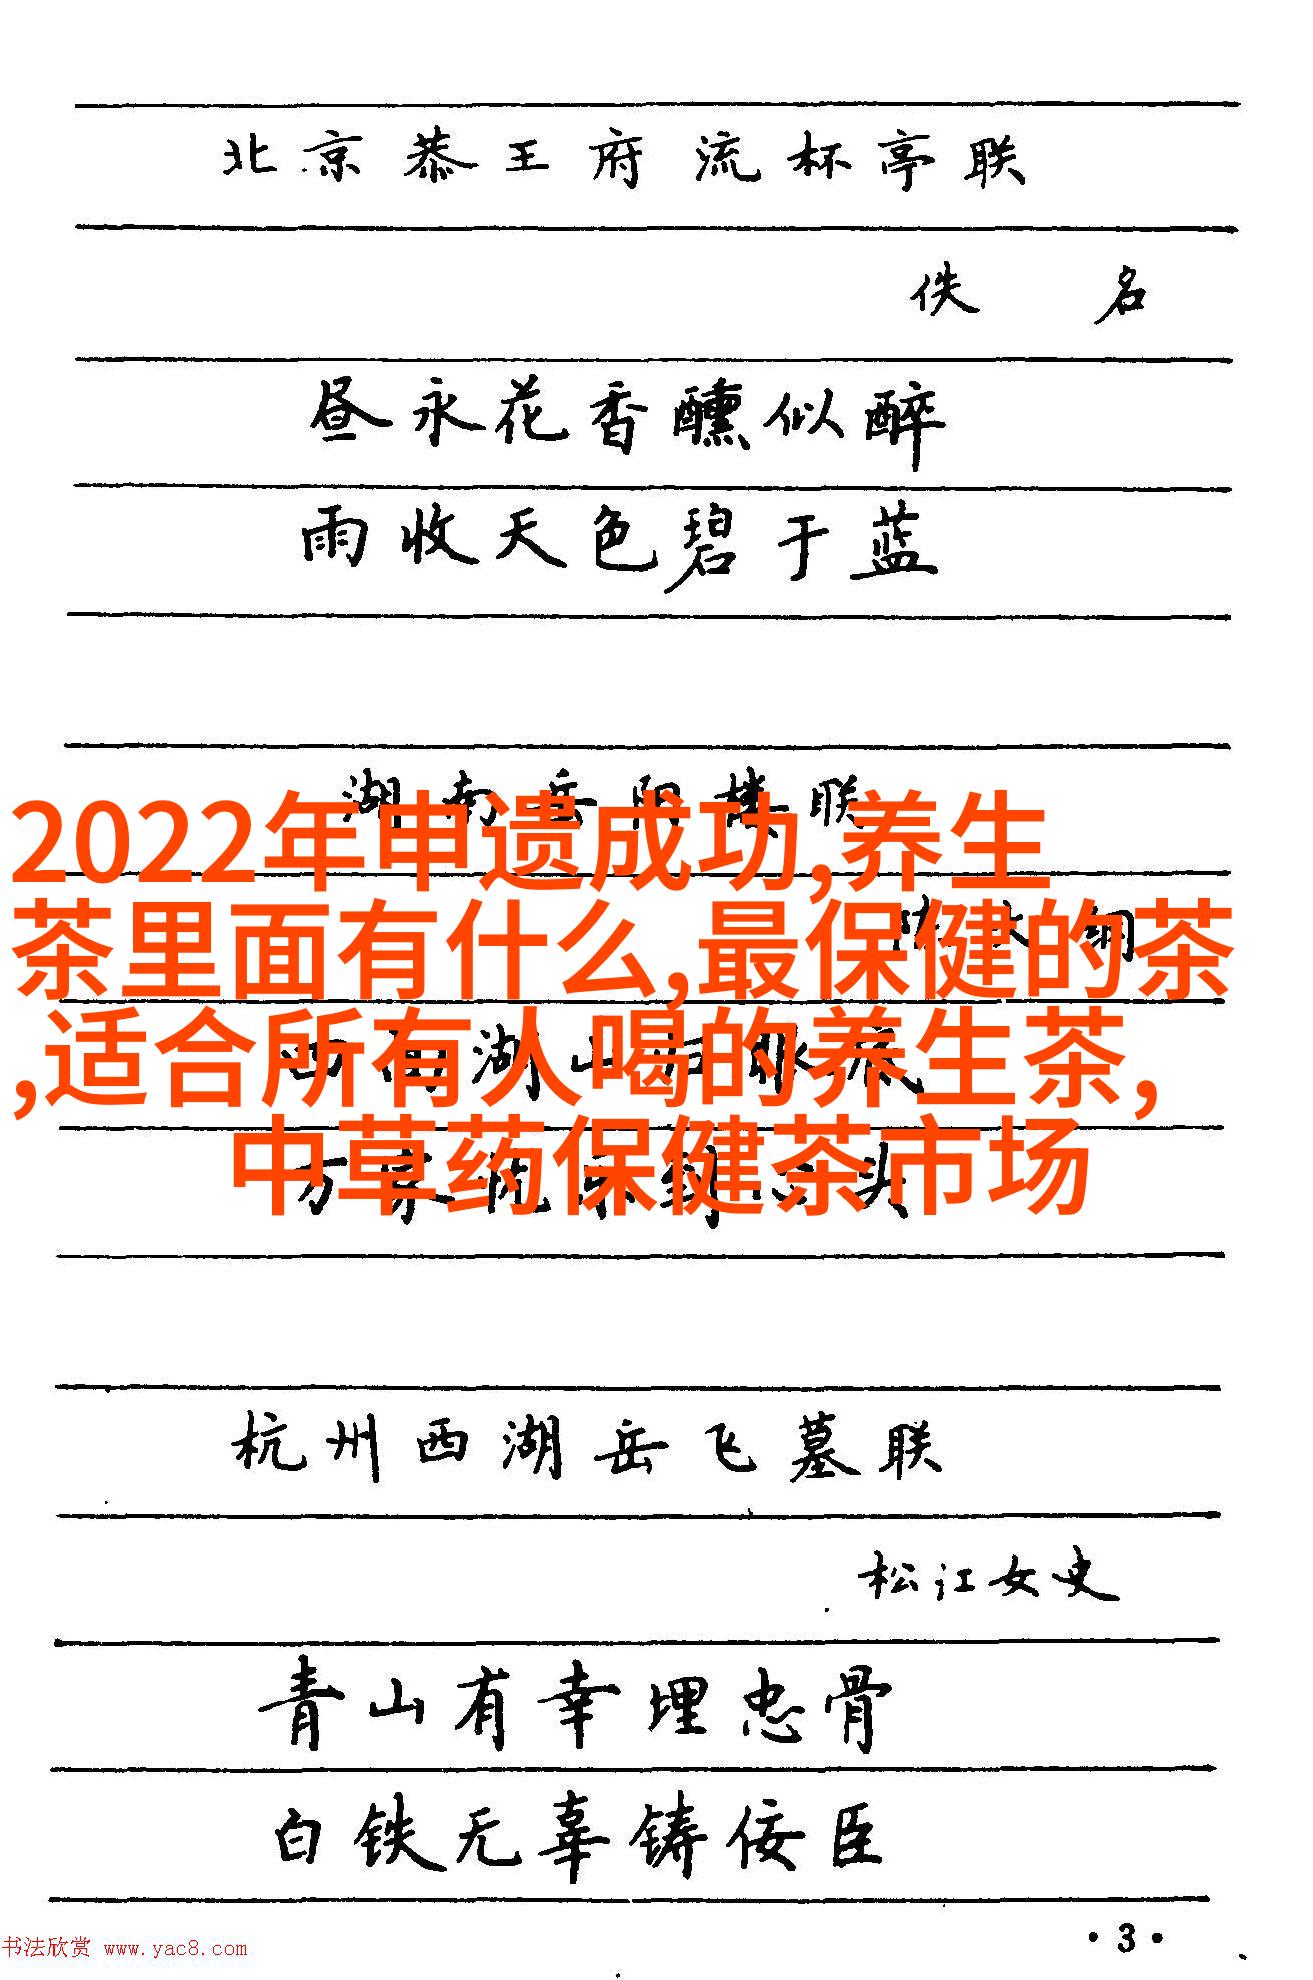 北京恭王府流杯亭联
佚名
昼永花香醺似醉
雨收天色碧于蓝
湖南岳阳楼联
2022年申遗成功,养生
茶里面有什么,最保健的茶
,适合所有人喝的养生茶,
中草药保健茶市场
杭州西湖岳飞墓联
松江女史
青山有幸埋忠骨
白铁无辜铸佞臣
·3·
书法欣赏 www.yac8.com